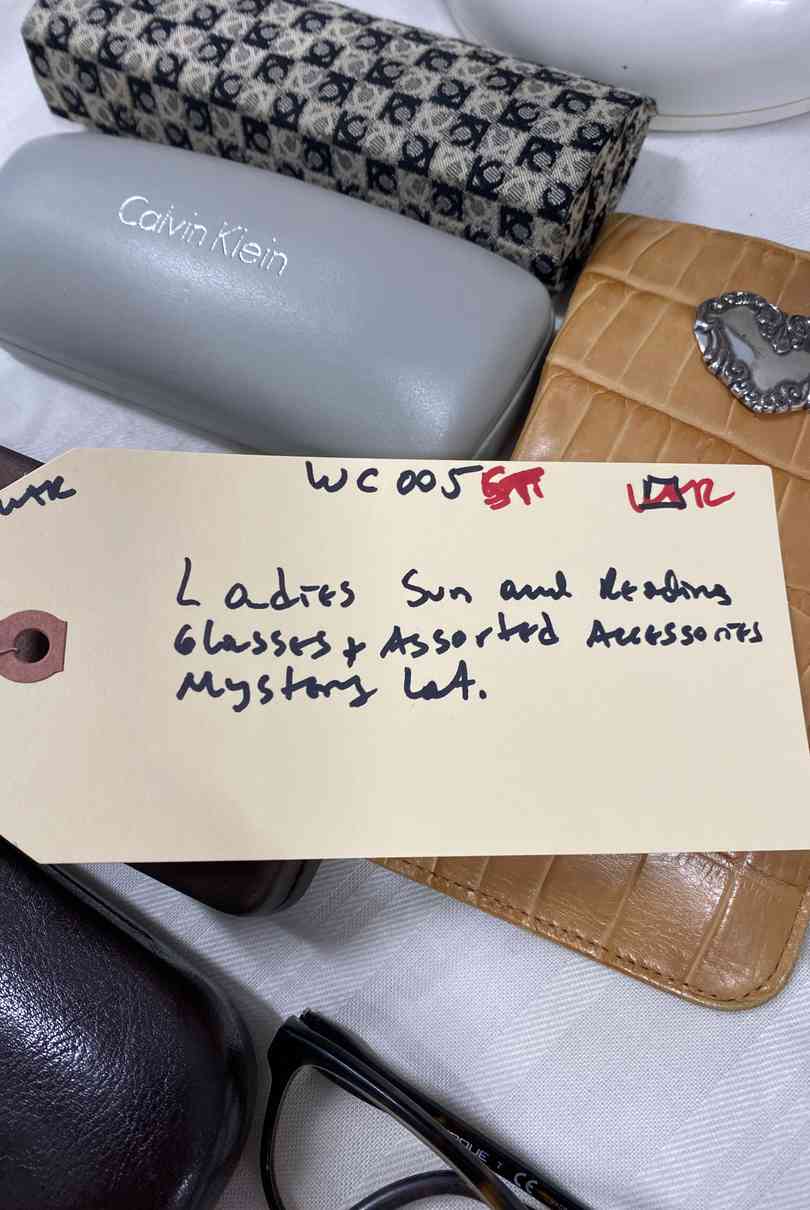 Calvin Klein
WC 005
Ladies Sun and Reading
Glasses + Assorted Accessories
Mystery Lot.
CE